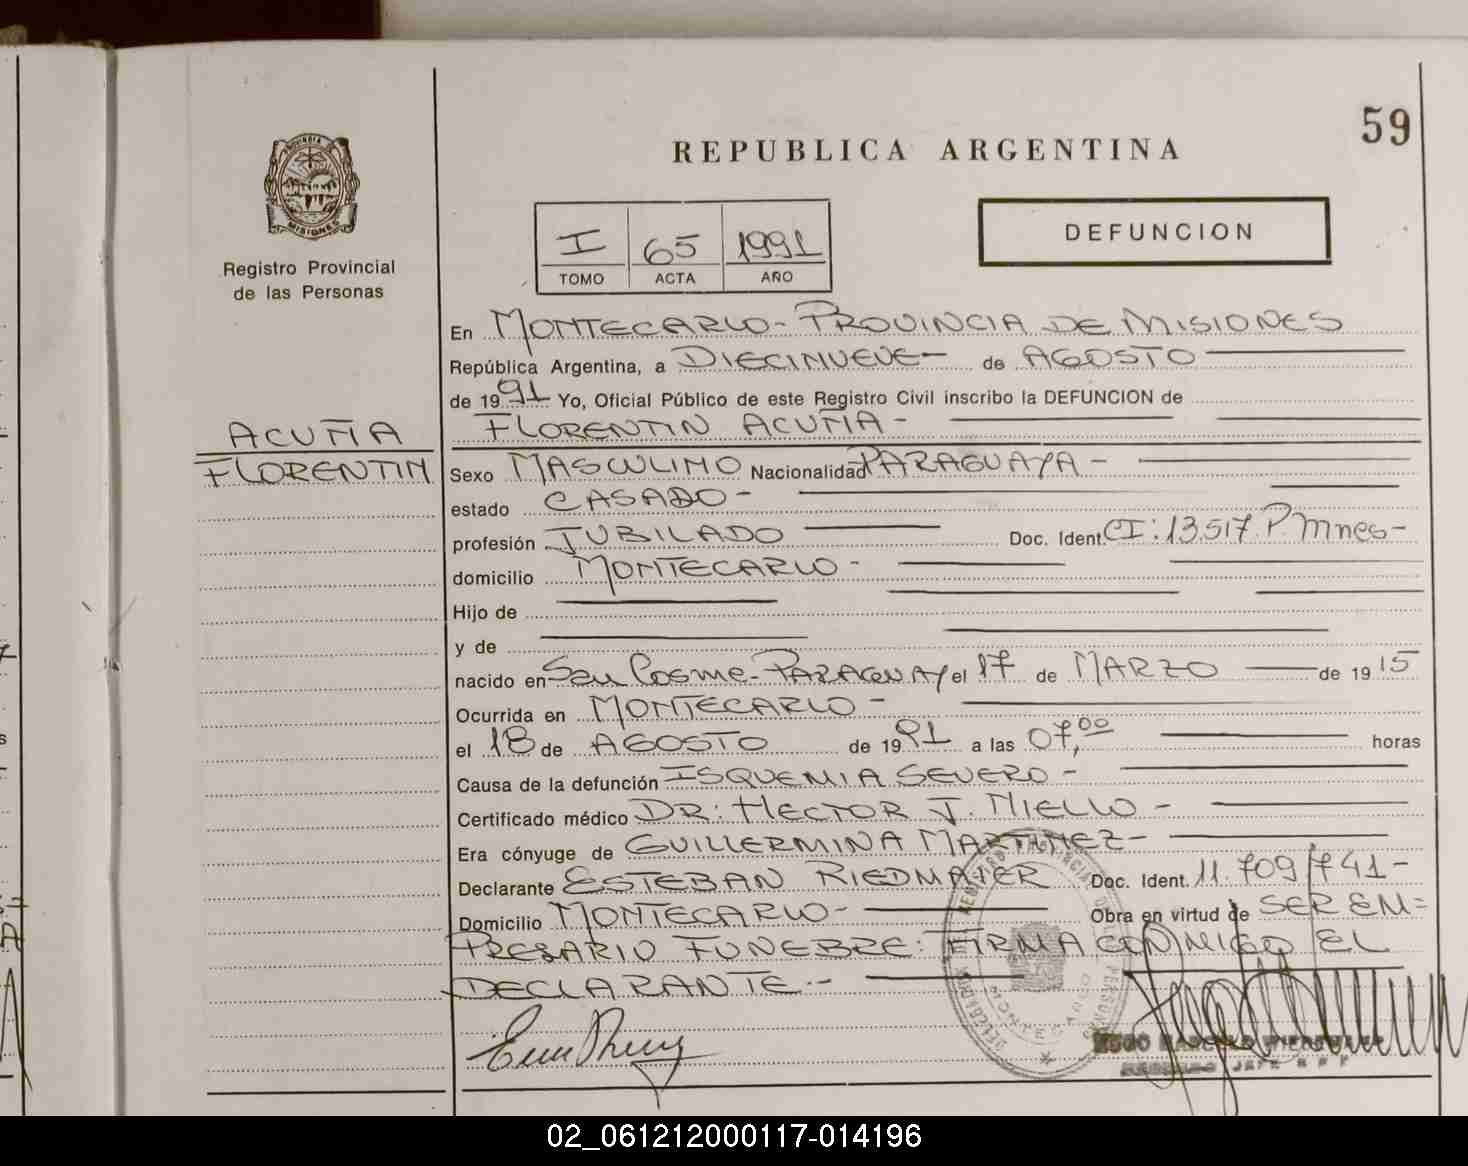 59
REPUBLICA ARGENTINA
PROVINCIA DE
MISIONES
Registro Provincial
de las Personas
DEFUNCION
I 65 1991
TOMO ACTA AÑO
En MONTECARLO - PROVINCIA DE MISIONES
República Argentina, a DIECINUEVE - de AGOSTO
de 1991 Yo, Oficial Público de este Registro Civil inscribo la DEFUNCION de
ACUÑA
FLORENTIN
FLORENTIN ACUÑA -
Sexo MASCULINO Nacionalidad PARAGUAYA -
estado CASADO -
profesión JUBILADO Doc. Ident. CI: 13.517 P. Mnes -
domicilio MONTECARLO -
Hijo de
y de
nacido en San Cosme - PARAGUAY el 17 de MARZO de 1915
Ocurrida en MONTECARLO -
el 18 de AGOSTO de 1991 a las 07,00 horas
Causa de la defunción ISQUEMIA SEVERO -
Certificado médico DR: HECTOR J. MIELLO -
Era cónyuge de GUILLERMINA MARTINEZ -
Declarante ESTEBAN RIEDMAIER Doc. Ident. 11.709.741 -
Domicilio MONTECARLO - Obra en virtud de SER EM=
PRESARIO FUNEBRE: FIRMA CONMIGO EL
DECLARANTE. -
MONTECARLO
02_061212000117-014196